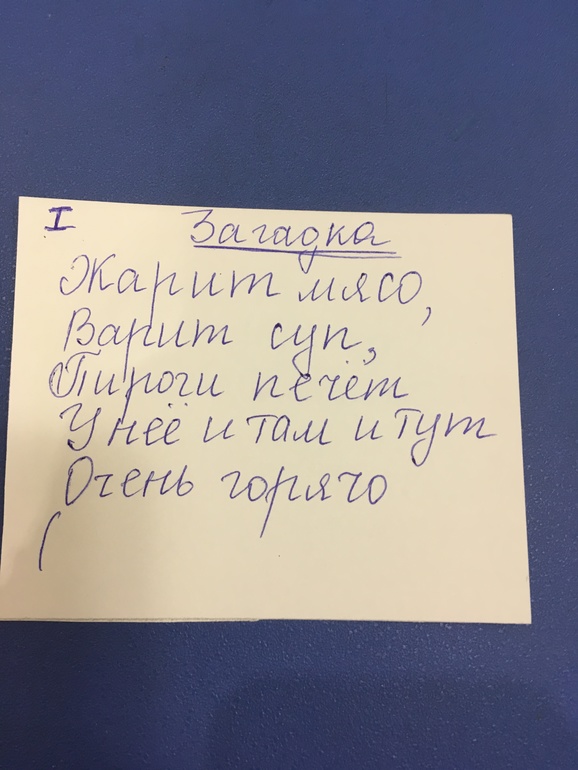 I
Загадка
Жарит мясо,
Варит суп,
Пироги печёт
У неё и там и тут
Очень горячо
(